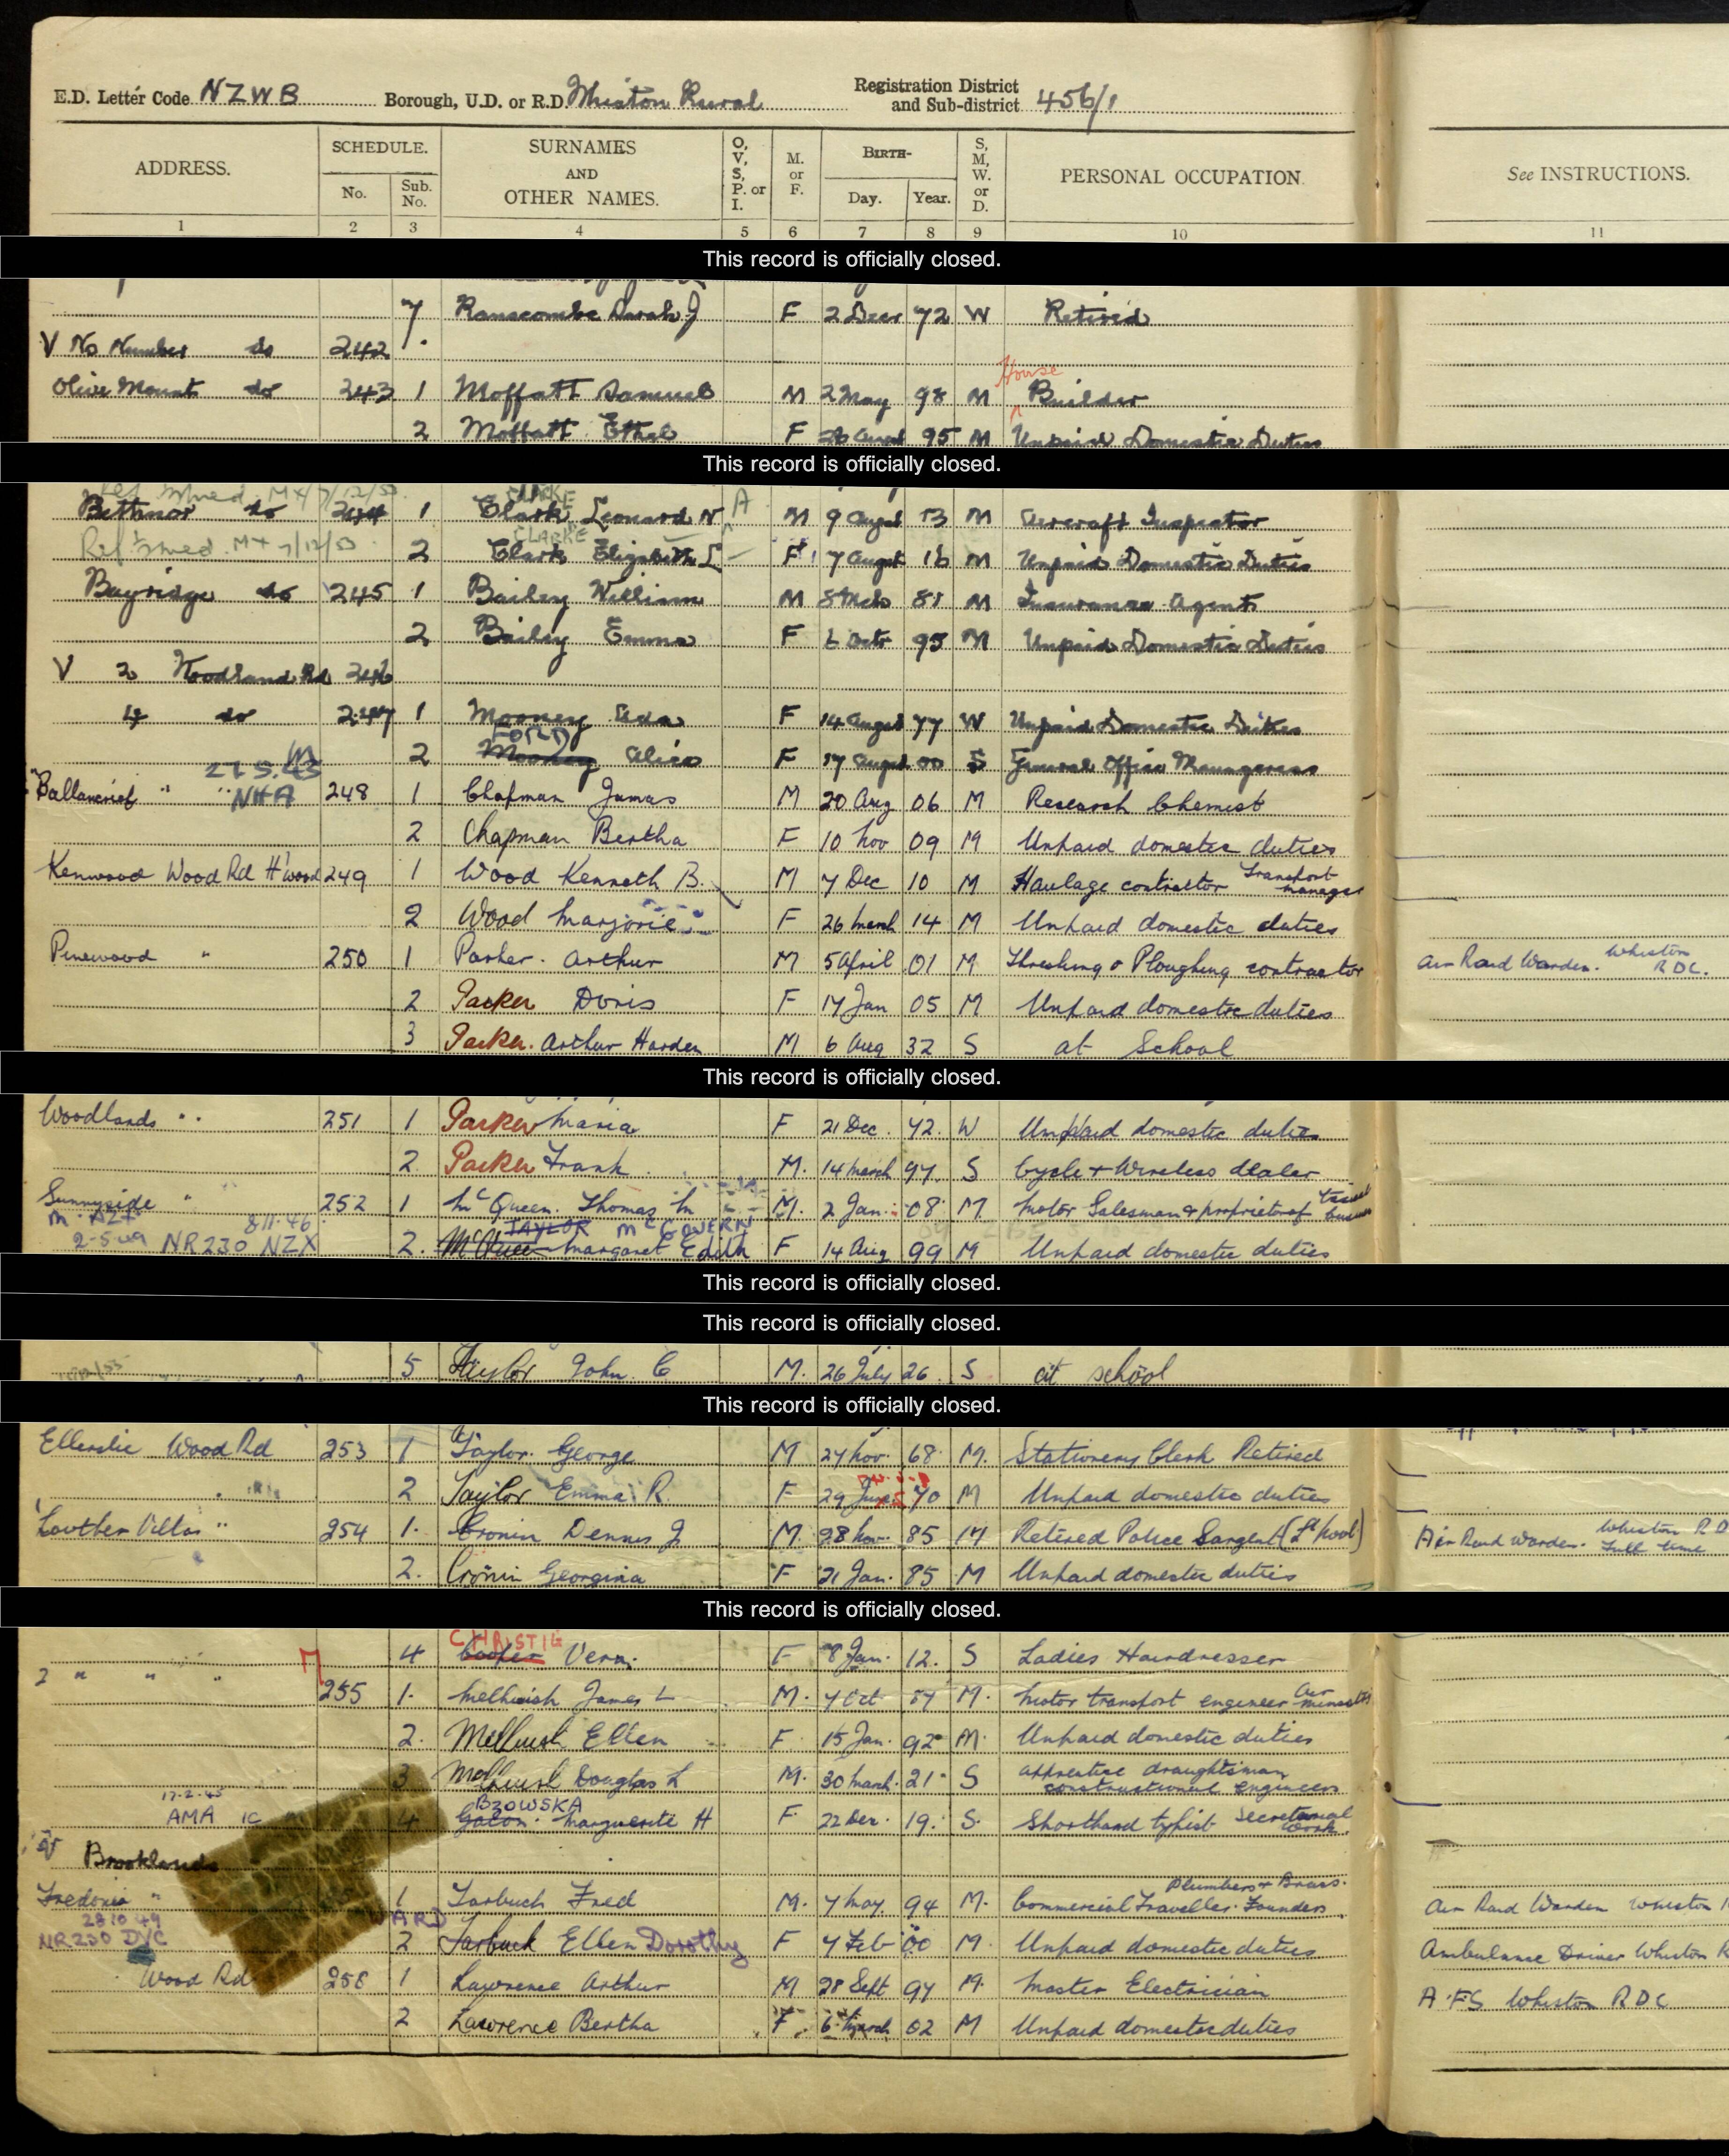 E.D. Letter Code NZWB Borough, U.D. or R.D. Whiston Rural Registration District and Sub-district 456/1
ADDRESS. SCHEDULE. No. Sub. No. SURNAMES AND OTHER NAMES. O, V, S, P. or I. M. or F. BIRTH- Day. Year. S, M, W. or D. PERSONAL OCCUPATION. See INSTRUCTIONS.
1 2 3 4 5 6 7 8 9 10 11
This record is officially closed.
7 Ranscombe Sarah J F 2 Decr 72 W Retired
V No Number do 242
House
Olive Mount do 243 1 Moffatt Samuel M 2 May 98 M Builder
2 Moffatt Ethel F 26 Augst 95 M Unpaid Domestic Duties
This record is officially closed.
CLARKE A
do 244 1 Clark Leonard N M 9 Augst 13 M Aircraft Inspector
CLARKE
2 Clark Elizabeth L F 7 Augst 16 M Unpaid Domestic Duties
Bayridge do 245 1 Bailey William M 8 Mch 81 M Insurance Agent
2 Bailey Emma F 6 Octr 95 M Unpaid Domestic Duties
V 2 Woodland Rd 246
4 do 247 1 Mooney Ada F 14 Augst 77 W Unpaid Domestic Duties
FORD
27.5.43 M 2 Mooney Alice F 17 Augst 00 S General Office Manageress
" " NHA 248 1 Chapman James M 20 Aug 06 M Research Chemist
2 Chapman Bertha F 10 Nov 09 M Unpaid domestic duties
Kenwood Wood Rd H'wood 249 1 Wood Kenneth B. M 7 Dec 10 M Haulage contractor Transport manager
2 Wood Marjorie F 26 March 14 M Unpaid domestic duties
Pinewood " 250 1 Parker. Arthur M 5 April 01 M Threshing & Ploughing contractor Air Raid Warden. Whiston RDC.
2 Parker Doris F 17 Jan 05 M Unpaid domestic duties
3 Parker. Arthur Harden M 6 Aug 32 S at School
This record is officially closed.
Woodlands " 251 1 Parker Maria F 21 Dec. 72. W Unpaid domestic duties
2 Parker Frank M. 14 March 97 S Cycle & Wireless dealer
Sunnyside " 252 1 McQueen. Thomas M M. 2 Jan. 08 M. Motor Salesman & proprietor of taxi business
8.11.46 TAYLOR McGOVERN
2-5-49 NR230 NZX 2. McQueen Margaret Edith F 14 Aug 99 M Unpaid domestic duties
This record is officially closed.
This record is officially closed.
5 Taylor John C M. 26 July 26 S at school
This record is officially closed.
Ellerslie Wood Rd 253 1 Taylor. George M 27 Nov. 68 M. Stationery Clerk Retired
2 Taylor Emma R. F 29 June 70 M Unpaid domestic duties
Lowther Villas " 254 1. Cronin Dennis J M 28 Nov. 85 M Retired Police Sargent (L'pool) Air Raid Warden. Whiston RD Full time
2. Cronin Georgina F 21 Jan. 85 M Unpaid domestic duties
This record is officially closed.
CHRISTIE
M 4 Cooper Vera. F 8 Jan. 12. S Ladies Hairdresser
2 " " " 255 1. Melhuish James L M. 7 Oct 87 M. Motor transport engineer Air Ministry
2. Melhuish Ellen F. 15 Jan. 92 M. Unpaid domestic duties
3 Melhuish Douglas L M. 30 March. 21 S apprentice draughtsman constructional engineers
17-2-45 BZOWSKA
AMA 1C 4 Marguerite H F. 22 Dec. 19. S. Shorthand typist Secretarial work.
V Brooklands
Fredonia " 1 Tarbuck Fred M. 7 May 94 M. Commercial Traveller Plumbers & Brass Founders. Air Raid Warden Whiston
28 10 49 ARD
NR230 DVC 2 Tarbuck Ellen Dorothy F 7 Feb 00 M. Unpaid domestic duties Ambulance Driver Whiston R
Wood Rd 258 1 Lawrence Arthur M 28 Sept 97 M. Master Electrician A.F.S Whiston RDC
2 Lawrence Bertha F. 6 March 02 M Unpaid domestic duties